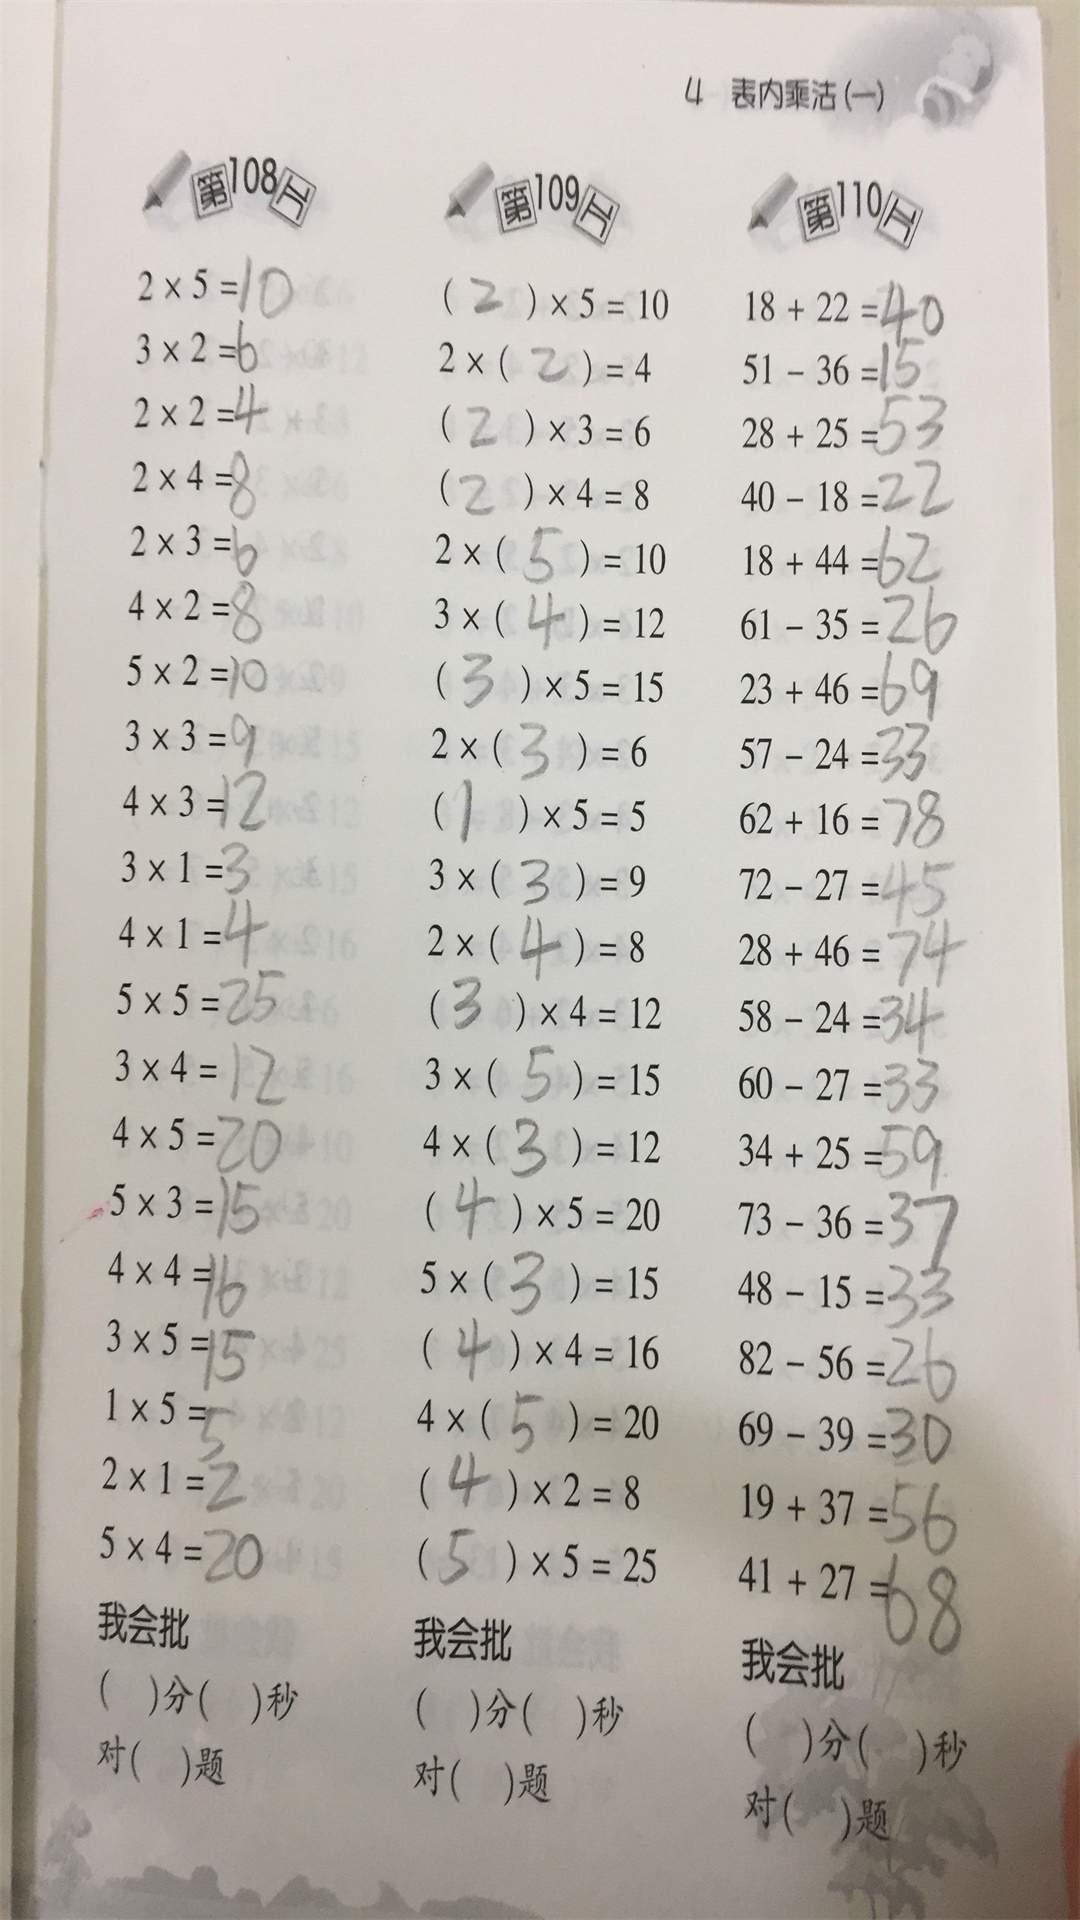 4 表内乘法(一)
第108工
2 × 5 =10
3 × 2 =6
2 × 2 =4
2 × 4 =8
2 × 3 =6
4 × 2 =8
5 × 2 =10
3 × 3 =9
4 × 3 =12
3 × 1 =3
4 × 1 =4
5 × 5 =25
3 × 4 =12
4 × 5 =20
5 × 3 =15
4 × 4 =16
3 × 5 =15
1 × 5 =5
2 × 1 =2
5 × 4 =20
我会批
( )分( )秒
对( )题
第109工
( 2 ) × 5 = 10
2 × ( 2 ) = 4
( 2 ) × 3 = 6
( 2 ) × 4 = 8
2 × ( 5 ) = 10
3 × ( 4 ) = 12
( 3 ) × 5 = 15
2 × ( 3 ) = 6
( 1 ) × 5 = 5
3 × ( 3 ) = 9
2 × ( 4 ) = 8
( 3 ) × 4 = 12
3 × ( 5 ) = 15
4 × ( 3 ) = 12
( 4 ) × 5 = 20
5 × ( 3 ) = 15
( 4 ) × 4 = 16
4 × ( 5 ) = 20
( 4 ) × 2 = 8
( 5 ) × 5 = 25
我会批
( )分( )秒
对( )题
第110工
18 + 22 =40
51 − 36 =15
28 + 25 =53
40 − 18 =22
18 + 44 =62
61 − 35 =26
23 + 46 =69
57 − 24 =33
62 + 16 =78
72 − 27 =45
28 + 46 =74
58 − 24 =34
60 − 27 =33
34 + 25 =59
73 − 36 =37
48 − 15 =33
82 − 56 =26
69 − 39 =30
19 + 37 =56
41 + 27 =68
我会批
( )分( )秒
对( )题